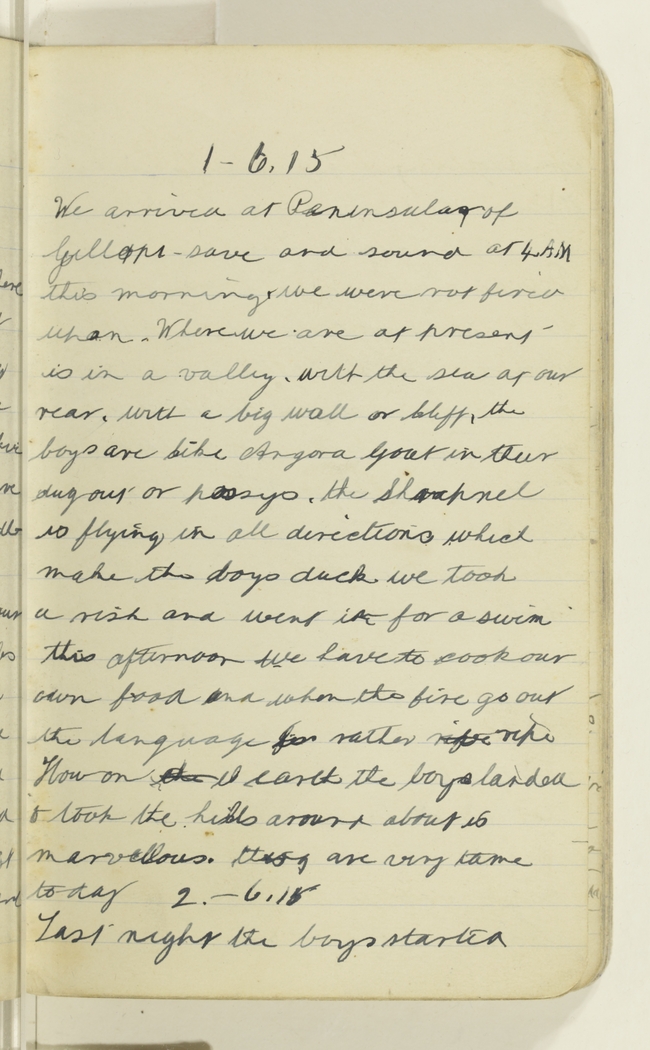 1-6.15
We arrived at Peninsular of
Gillopi - save and sound at 4 AM
this morning, we were not fired
upon. Where we are at present
is in a valley. with the sea at our
rear. with a big wall or cliff, the
boys are like Angora Goat in their
dugout or possys. the Shrapnel
is flying in all directions which
make the boys duck. we took
a risk and went in for a swim
this afternoon we have to cook our
own food and when the fire go out
the language is rather ripe ripe
How on the earth the boys landed
& took the hills around about is
marvellous. things are very tame
today 2.-6.15
Last night the boys started